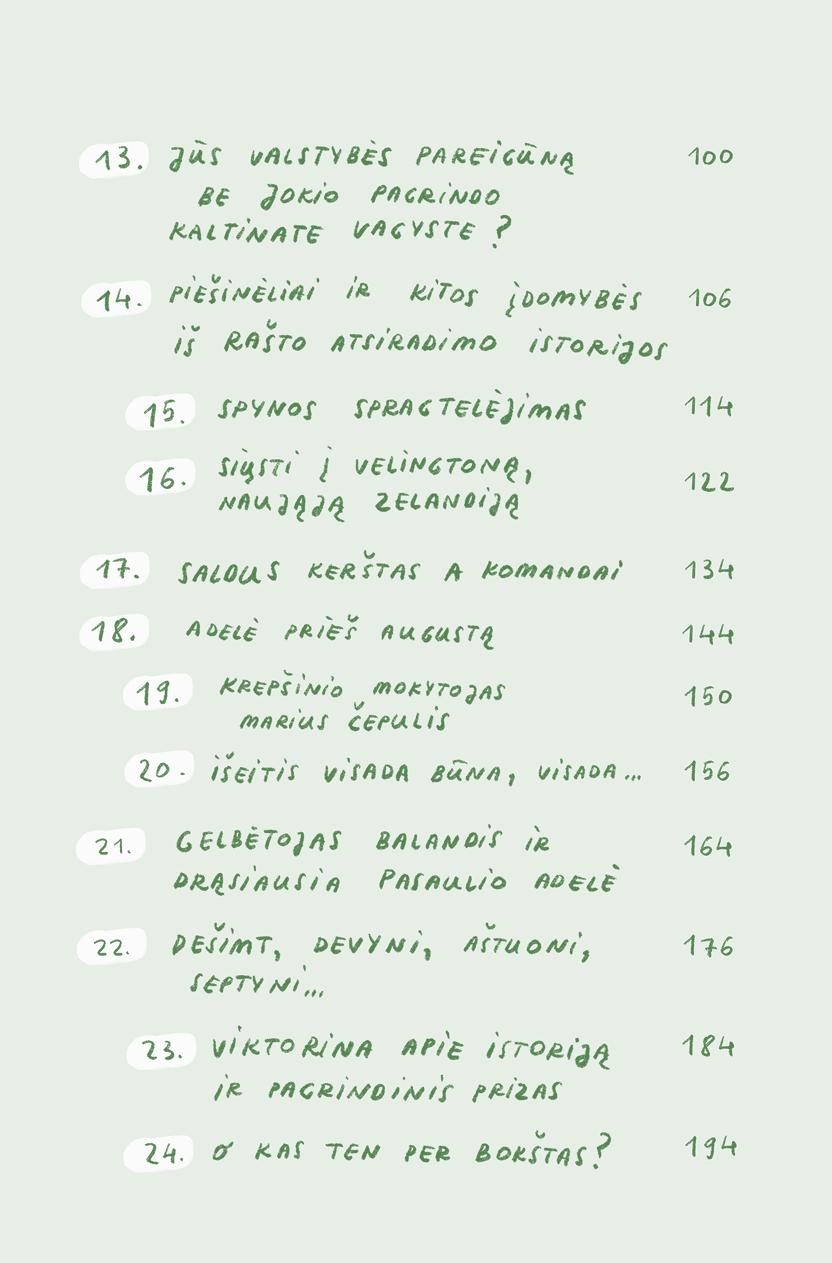 13. JŪS VALSTYBĖS PAREIGŪNĄ 100
BE JOKIO PAGRINDO
KALTINATE VAGYSTE?
14. PIEŠINĖLIAI IR KITOS ĮDOMYBĖS 106
IŠ RAŠTO ATSIRADIMO ISTORIJOS
15. SPYNOS SPRAGTELĖJIMAS 114
16. SIŲSTI Į VELINGTONĄ, 122
NAUJĄJĄ ZELANDIJĄ
17. SALDUS KERŠTAS A KOMANDAI 134
18. ADELĖ PRIEŠ AUGUSTĄ 144
19. KREPŠINIO MOKYTOJAS 150
MARIUS ČEPULIS
20. IŠEITIS VISADA BŪNA, VISADA... 156
21. GELBĖTOJAS BALANDIS IR 164
DRĄSIAUSIA PASAULIO ADELĖ
22. DEŠIMT, DEVYNI, AŠTUONI, 176
SEPTYNI...
23. VIKTORINA APIE ISTORIJĄ 184
IR PAGRINDINIS PRIZAS
24. O KAS TEN PER BOKŠTAS? 194